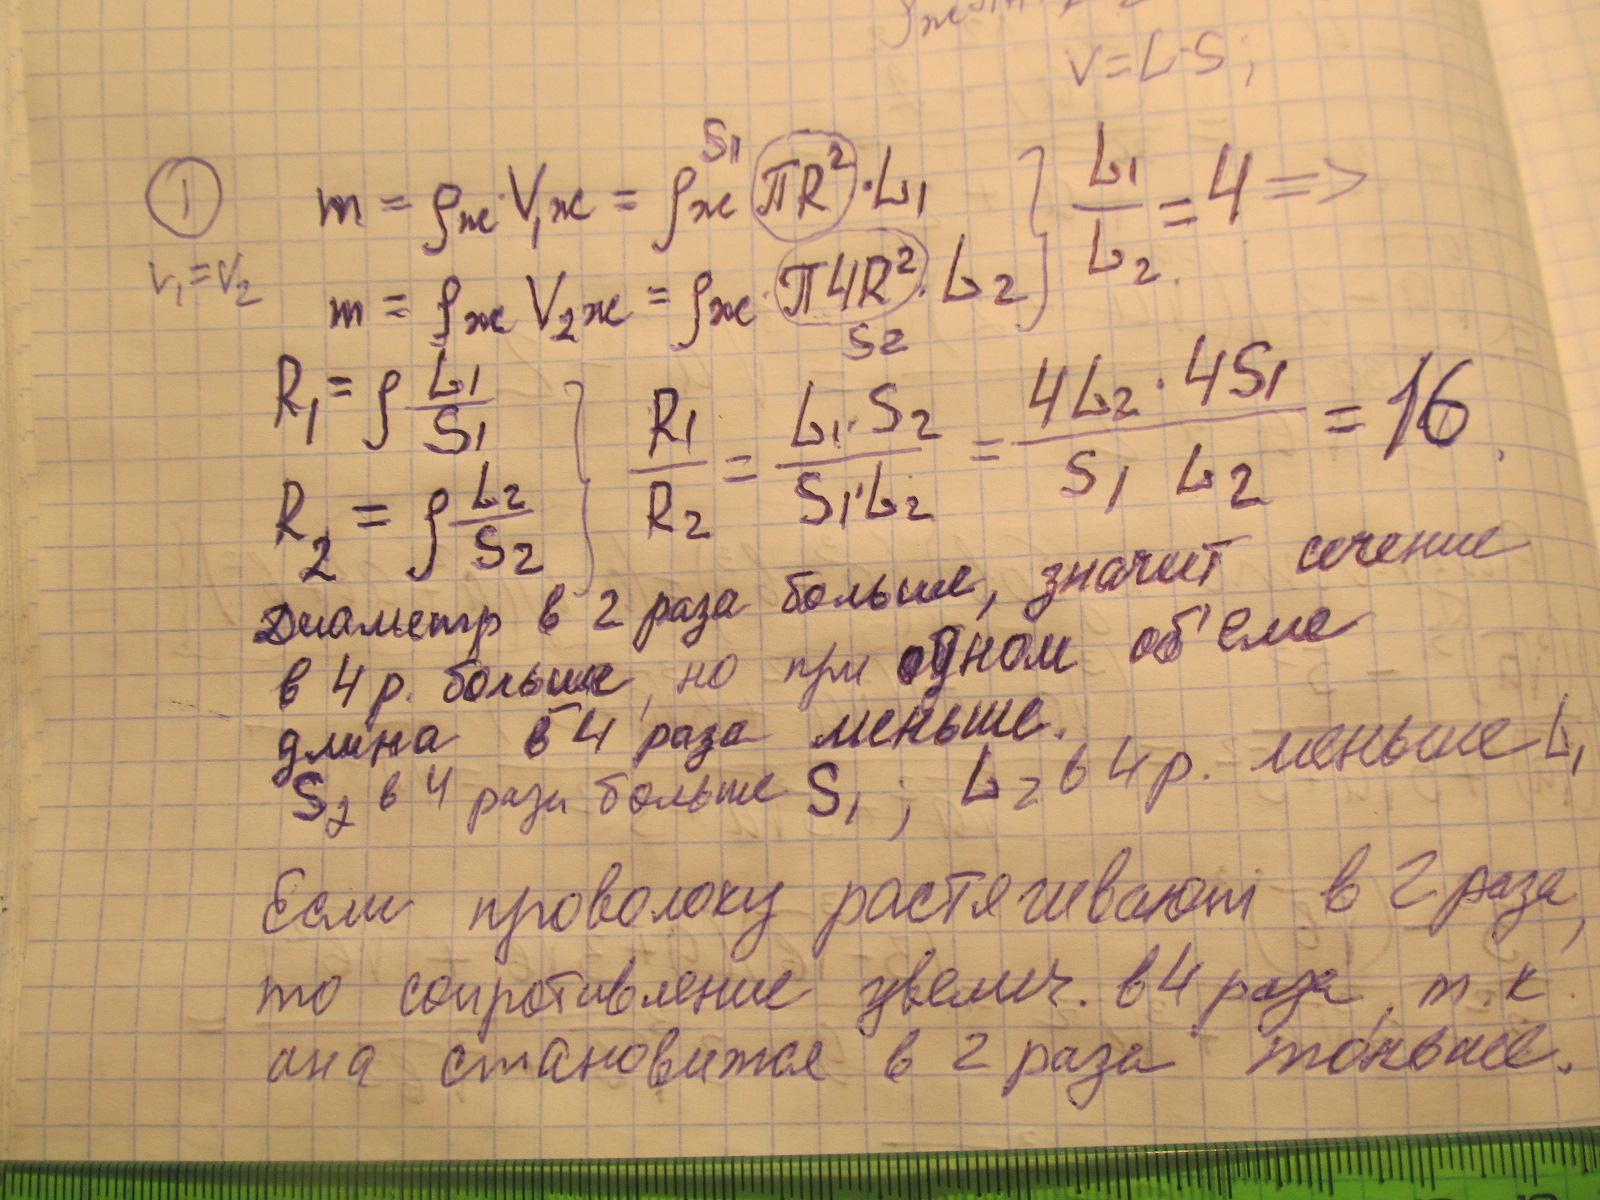 V=L·S;
① m = ρж·V₁ж = ρж πR²·L₁ } L₁/L₂ = 4 =>
S₁
V₁=V₂
m = ρж V₂ж = ρж·π4R²·L₂
S₂
R₁ = ρ L₁/S₁ } R₁/R₂ = L₁·S₂/S₁·L₂ = 4L₂·4S₁/S₁ L₂ = 16.
R₂ = ρ L₂/S₂
Диаметр в 2 раза больше, значит сечение
в 4 р. больше, но при одном об'еме
длина в 4 раза меньше.
S₂ в 4 раза больше S₁; L₂ в 4 р. меньше L₁
Если проволоку растягивают в 2 раза,
то сопротивление увелич. в 4 раза, т.к.
она становится в 2 раза тоньше.